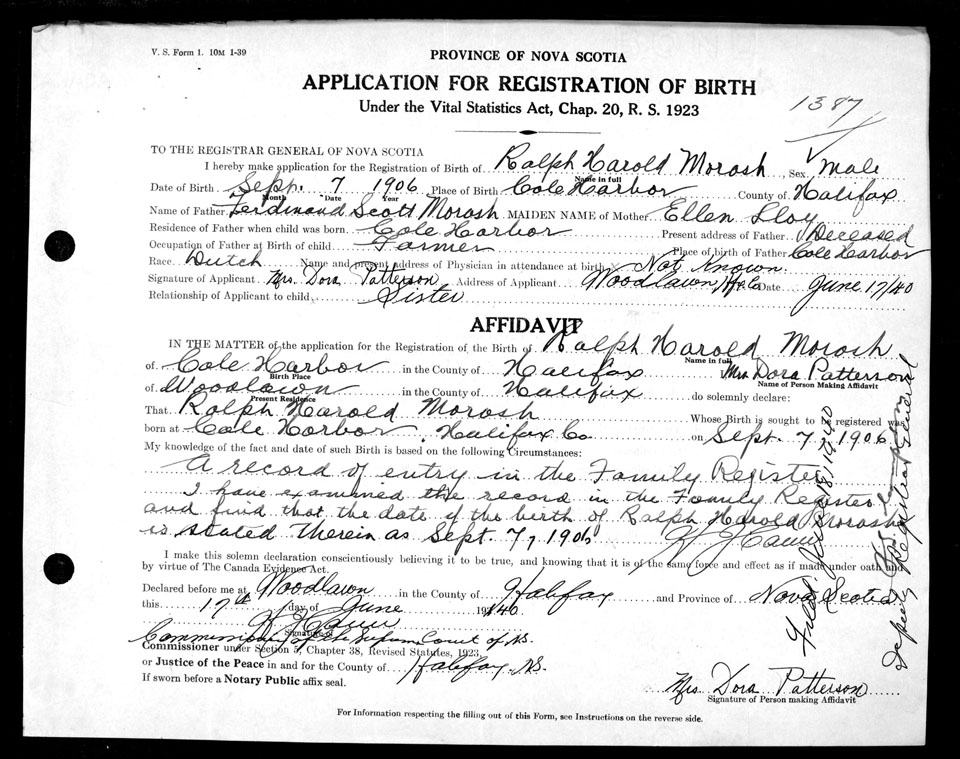 V. S. Form 1. 10M 1-39
PROVINCE OF NOVA SCOTIA
APPLICATION FOR REGISTRATION OF BIRTH
Under the Vital Statistics Act, Chap. 20, R. S. 1923
1387
TO THE REGISTRAR GENERAL OF NOVA SCOTIA
I hereby make application for the Registration of Birth of Ralph Harold Morash Sex Male
Name in full
Date of Birth Sept. 7 1906 Place of Birth Cole Harbor County of Halifax
Month Date Year
Name of Father Ferdinand Scott Morash MAIDEN NAME of Mother Ellen Lloy
Residence of Father when child was born Cole Harbor Present address of Father Deceased
Occupation of Father at Birth of child Farmer Place of birth of Father Cole Harbor
Race Dutch Name and present address of Physician in attendance at birth Not Known.
Signature of Applicant Mrs. Dora Patterson Address of Applicant Woodlawn Hx Co Date June 17/40
Relationship of Applicant to child Sister
AFFIDAVIT
IN THE MATTER of the application for the Registration of the Birth of Ralph Harold Morash
Name in full
of Cole Harbor in the County of Halifax Mrs Dora Patterson
Birth Place Name of Person Making Affidavit
of Woodlawn in the County of Halifax do solemnly declare:
Present Residence
That Ralph Harold Morash Whose Birth is sought to be registered was
born at Cole Harbor, Halifax Co on Sept. 7, 1906
My knowledge of the fact and date of such Birth is based on the following Circumstances:
A record of entry in the Family Register
I have examined the record in the Family Register
and find that the date of the birth of Ralph Harold Morash
is stated therein as Sept. 7, 1906
I make this solemn declaration conscientiously believing it to be true, and knowing that it is of the same force and effect as if made under oath and
by virtue of The Canada Evidence Act.
Declared before me at Woodlawn in the County of Halifax and Province of Nova Scotia
this 17th day of June 1940
Signature of
Commissioner of the Supreme Court of N.S.
Commissioner under Section 5, Chapter 38, Revised Statutes, 1923
or Justice of the Peace in and for the County of Halifax, N.S.
If sworn before a Notary Public affix seal.
Mrs Dora Patterson
Signature of Person making Affidavit
For Information respecting the filling out of this Form, see Instructions on the reverse side.
Filed: June 18, 1940
Deputy Registrar General